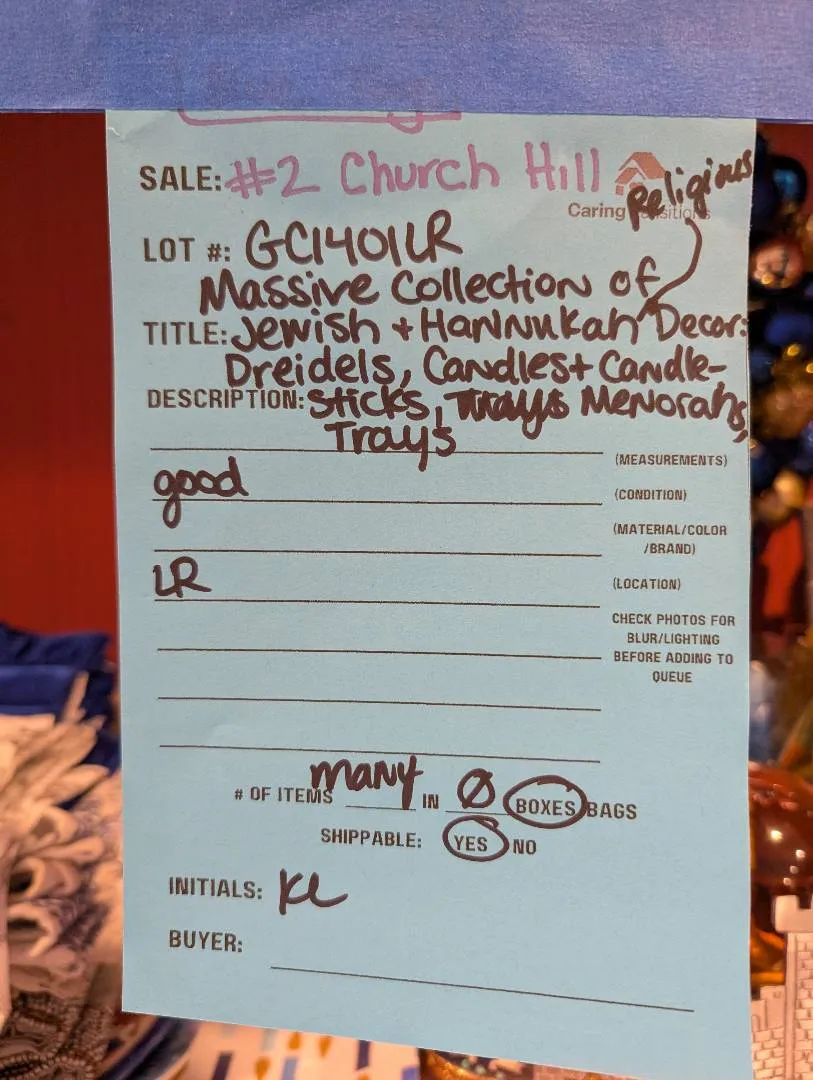 SALE: #2 Church Hill
Religious
Caring
LOT #: GC1401LR
Massive Collection of
TITLE: Jewish + Hannukah Decor:
Dreidels, Candles + Candle-
DESCRIPTION: sticks, Trays Menorahs,
Trays
(MEASUREMENTS)
good (CONDITION)
(MATERIAL/COLOR
/BRAND)
LR (LOCATION)
CHECK PHOTOS FOR
BLUR/LIGHTING
BEFORE ADDING TO
QUEUE
# OF ITEMS many IN Ø BOXES BAGS
SHIPPABLE: YES NO
INITIALS: KL
BUYER: